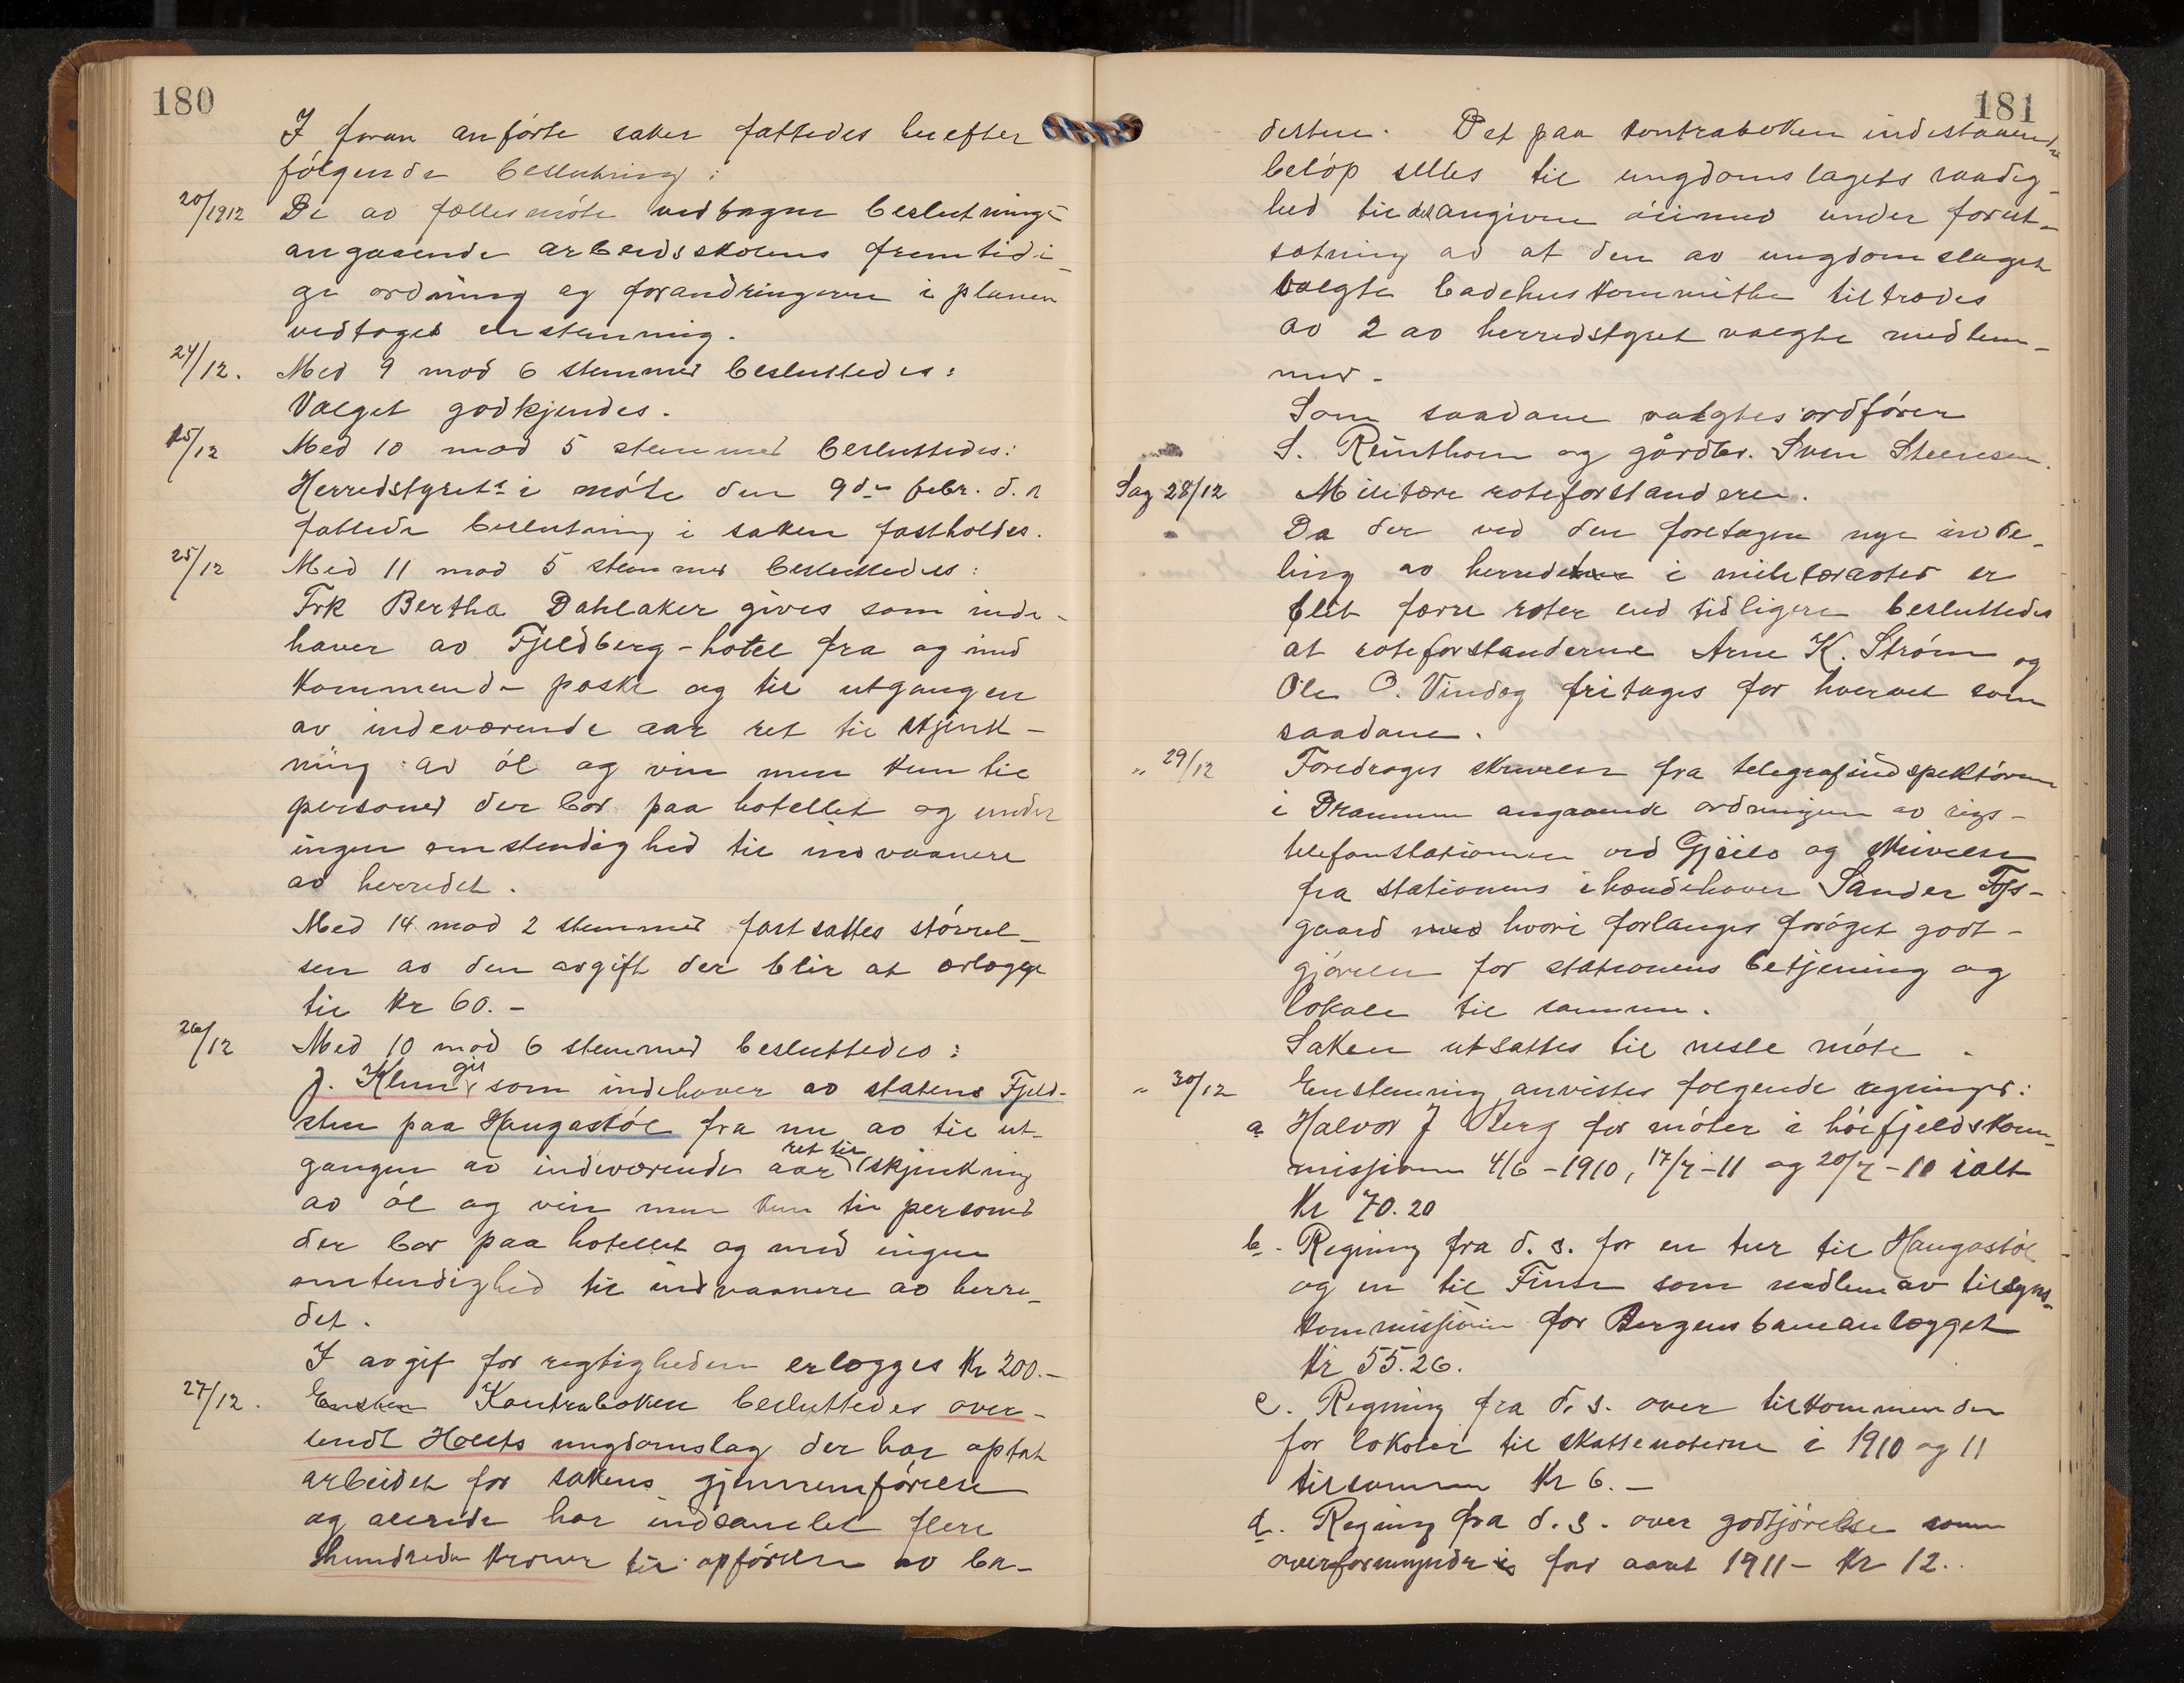 180
I foran anförte saker fattedes herefter
fölgende beslutning:
20/1912 De av fællesmöte vedtagne beslutninger
angaaende arbeidsskolens fremtidi-
ge ordning og forandringerne i planen
vedtoges enstemmig.
24/12. Med 9 mod 6 stemmer besluttedes:
Valget godkjendes.
15/12 Med 10 mod 5 stemmer besluttedes:
Herredstyrets i möte den 9de febr. d. a
fattede beslutning i saken fastholdes.
25/12 Med 11 mod 5 stemmer besluttedes:
Frk Bertha Dahlaker gives som inde-
haver av Fjeldberg-hotel fra og med
kommende paske og til utgangen
av indeværende aar ret til skjenk-
ning av öl og vin men kun til
personer der bor paa hotellet og under
ingen omstendighed til indvaanere
av herredet.
Med 14 mod 2 stemmer fastsattes störrel-
sen av den avgift der blir at erlægge
til Kr 60.-
26/12 Med 10 mod 6 stemmer besluttedes:
J. Klem gis som indehaver av statens Fjeld-
stue paa Haugastöl fra nu av til ut-
gangen av indeværende aar ret til skjenkning
av öl og vin men kun til personer
der bor paa hotellet og med ingen
omtendighed til indvaanere av herre-
det.
I avgif for regtigheden erlægges Kr 200.-
27/12. Enstem Kontraboken besluttedes over-
sendt Hols ungdomslag der har optat
arbeidet for sakens gjennemförelse
og allerede har indsamlet flere
hundrede kroner til opförelse av ba-
181
destue. Det paa kontraboken indestaaende
belöp stilles til ungdomslagets raadig-
hed til det angivne öiemed under forut-
sætning av at den av ungdomslaget
valgte badehuskommitthe tiltrædes
av 2 av herredstyret valgte medlem-
mer.
Som saadane valgtes ordförer
S. Reinthon og gårdbr. Sven Steenesen.
Sag 28/12 Militære roteforstandere.
Da der ved den foretagne nye indde-
ling av herredet i militærroter er
blit færre roter end tidligere besluttedes
at roteforstanderne Arne K. Ström og
Ole O. Vindeg fritages for hvervet som
saadane.
" 29/12 Foredroges skrivelse fra telegrafindspektören
i Drammen angaaende ordningen av rigs-
telefonstationen ved Gjeilo og skrivelse
fra stationens ihændehaver Sander Tufs-
gaard med hvori forlanges foröget godt-
gjörelse for stationens betjening og
lokale til samme.
Saken utsattes til neste möte.
" 30/12 Enstemmig anvistes folgende regninger:
a Halvor J Berg for möter i höifjeldskom-
missionen 4/6-1910, 17/7-11 og 20/7-10 ialt
Kr 70.20
b. Regning fra d. s. for en tur til Haugastöl
og en til Finse som medlem av tilsyns-
kommissionen for Bergensbaneanlægget
Kr 55.26.
c. Regning fra d. s. over tilkommende
for lokaler til skattemöterne i 1910 og 11
tilsammen Kr 6.-
d. Regning fra d. s. over godtjörelse som
overformynder for aaret 1911 - Kr 12.